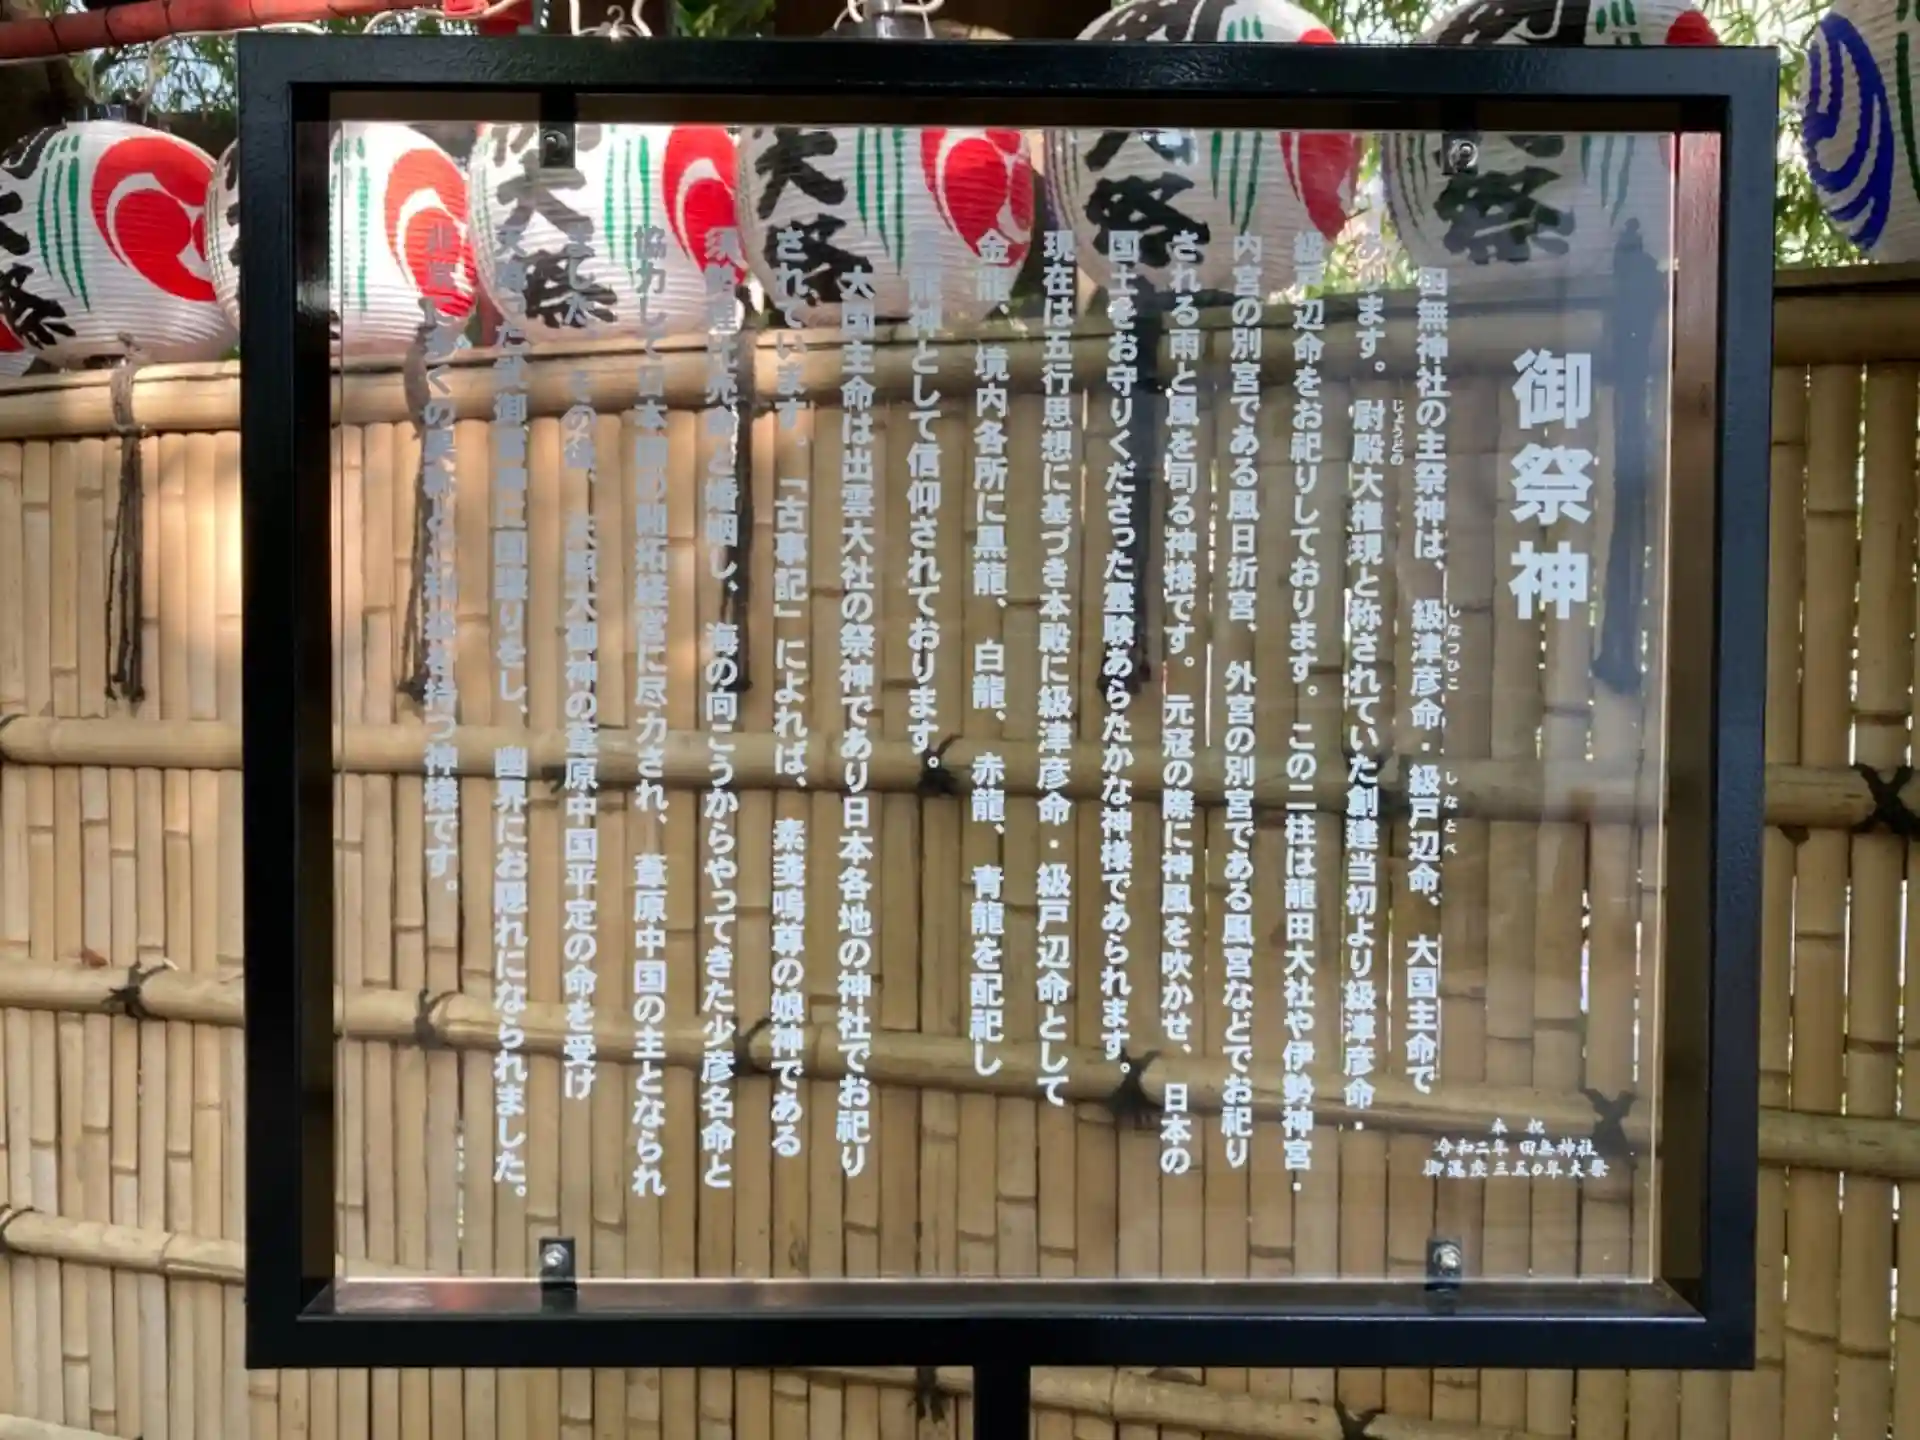 御祭神
田無神社の主祭神は、級津彦命・級戸辺命、大国主命で
しなつひこ
しなとべ
あります。尉殿大権現と称されていた創建当初より級津彦命・
じょうどの
級戸辺命をお祀りしております。この二柱は龍田大社や伊勢神宮・
内宮の別宮である風日折宮、外宮の別宮である風宮などでお祀り
される雨と風を司る神様です。元寇の際に神風を吹かせ、日本の
国土をお守りくださった霊験あらたかな神様であられます。
現在は五行思想に基づき本殿に級津彦命・級戸辺命として
金龍、境内各所に黒龍、白龍、赤龍、青龍を配祀し
龍神として信仰されております。
大国主命は出雲大社の祭神であり日本各地の神社でお祀り
されています。「古事記」によれば、素戔嗚尊の娘神である
須勢理毘売命と婚姻し、海の向こうからやってきた少彦名命と
協力して日本国の開拓経営に尽力され、葦原中国の主となられ
ました。その後、天照大御神の葦原中国平定の命を受け
国譲りをし、幽界にお隠れになられました。
多くの を持つ神様です。
奉 祝
令和二年 田無神社
御遷座三五〇年大祭
大祭
大祭
大祭
祭
祭